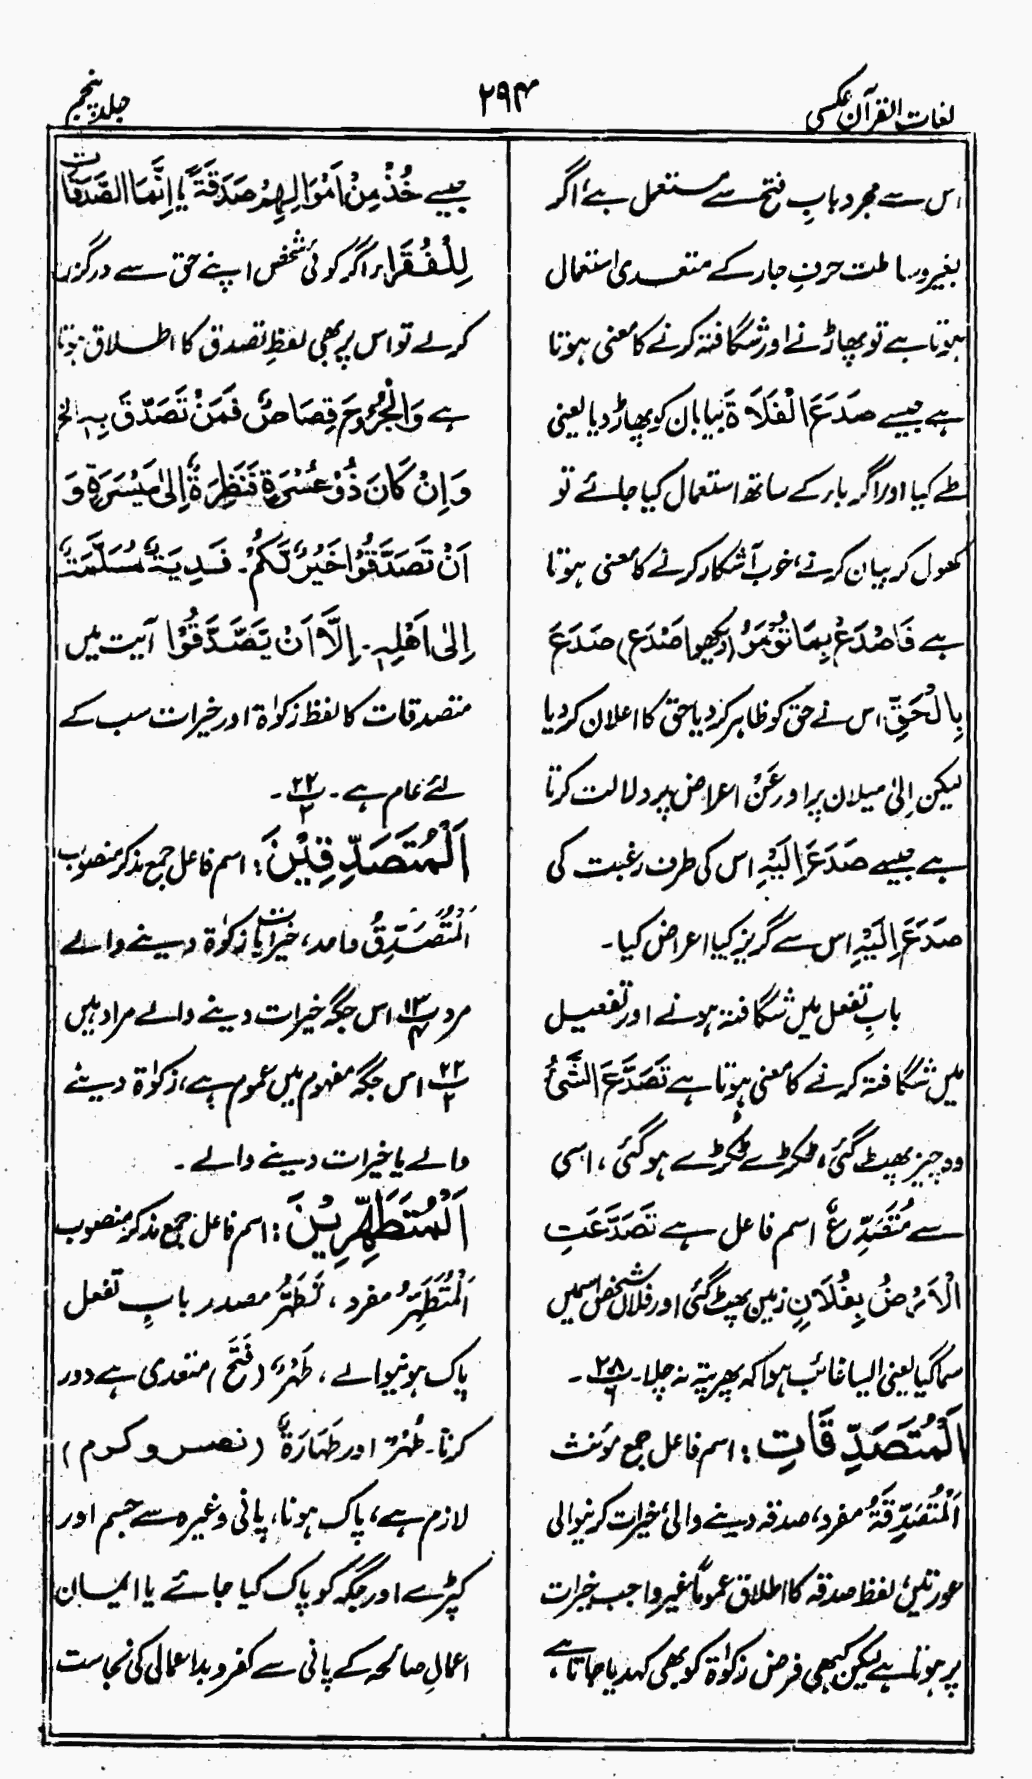 لغات القرآن عکسی
۲۹۴
جلد پنجم
اس سے مجرد باب فتح سے مستعمل ہے اگر
بغیر وساطت حرفِ جار کے متعدی استعمال
ہوتا ہے تو پھاڑنے اور شگافتہ کرنے کا معنی ہوتا
ہے جیسے صَدَعَ الْفَلَاةَ بیابان کو پھاڑ دیا یعنی
طے کیا اور اگر باء کے ساتھ استعمال کیا جائے تو
کھول کر بیان کرنے، خوب آشکار کرنے کا معنی ہوتا
ہے فَاصْدَعْ بِمَا تُؤْمَرُ (دیکھو اصْدَع) صَدَعَ
بِالْحَقِّ اس نے حق کو ظاہر کر دیا حق کا اعلان کر دیا
لیکن اِلیٰ میلان پر اور عَنْ اعراض پر دلالت کرتا
ہے جیسے صَدَعَ اِلَیْہِ اس کی طرف رغبت کی
صَدَعَ اِلَیْہِ اس سے گریز کیا اعراض کیا۔
بابِ تفعل میں شگافتہ ہونے اور تفعیل
میں شگافتہ کرنے کا معنی ہوتا ہے تَصَدَّعَ الشَّیْءُ
وہ چیز پھٹ گئی، ٹکڑے ٹکڑے ہو گئی، اسی
سے مُتَصَدِّعٌ اسم فاعل ہے تَصَدَّعَتِ
الْاَرْضُ بِفُلَانٍ زمین پھٹ گئی اور فلاں شخص اسمیں
سما گیا یعنی ایسا غائب ہوا کہ پھر پتہ نہ چلا۔ ۲۸/۶ ۔
اَلْمُتَصَدِّقَاتِ: اسم فاعل جمع مؤنث
اَلْمُتَصَدِّقَةُ مفرد، صدقہ دینے والی، خیرات کرنیوالی
عورتیں، لفظ صدقہ کا اطلاق عموماً غیر واجب خیرات
پر ہوتا ہے لیکن کبھی فرض زکوٰة کو بھی کہدیا جاتا ہے،
جیسے خُذْ مِنْ اَمْوَالِهِمْ صَدَقَةً یا اِنَّمَا الصَّدَقَاتُ
لِلْفُقَرَاءِ اگر کوئی شخص اپنے حق سے درگزر
کرلے تو اس پر بھی لفظِ تصدق کا اطلاق ہوتا
ہے وَالْجُرُوْحَ قِصَاصٌ فَمَنْ تَصَدَّقَ بِهٖ الخ
وَاِنْ كَانَ ذُوْ عُسْرَةٍ فَنَظِرَةٌ اِلٰى مَيْسَرَةٍ وَ
اَنْ تَصَدَّقُوْا خَيْرٌ لَّكُمْ۔ فَدِيَةٌ مُّسَلَّمَةٌ
اِلٰى اَهْلِهٖ۔ اِلَّا اَنْ يَّصَّدَّقُوْا آیت میں
متصدقات کا لفظ زکوٰة اور خیرات سب کے
لئے عام ہے۔ ۲۲/۲ ۔
اَلْمُتَصَدِّقِيْنَ: اسم فاعل جمع مذکر منصوب
اَلْمُتَصَدِّقُ واحد، خیرات یا زکوٰة دینے والے
مرد ۱۳/۴ اس جگہ خیرات دینے والے مراد ہیں
۲۲/۲ اس جگہ مفہوم میں عموم ہے، زکوٰة دینے
والے یا خیرات دینے والے۔
اَلْمُتَطَهِّرِيْنَ: اسم فاعل جمع مذکر منصوب
اَلْمُتَطَهِّرُ مفرد، تَطَهُّرٌ مصدر بابِ تفعل
پاک ہونیوالے، طَهْرٌ (فَتَحَ) متعدی ہے دور
کرنا۔ طُهْرٌ اور طَهَارَةٌ (نصر و کرم)
لازم ہے، پاک ہونا، پانی وغیرہ سے جسم اور
کپڑے اور جگہ کو پاک کیا جائے یا ایمان
اعمالِ صالحہ کے پانی سے کفر و بداعمالی کی نجاست